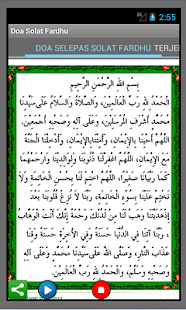 2:55
Doa Solat Fardhu
DOA SELEPAS SOLAT FARDHU TERJE
بِسْمِ اللهِ الرَّحْمٰنِ الرَّحِيْمِ
اَلْحَمْدُ لِلّٰهِ رَبِّ الْعَالَمِيْنَ، وَالصَّلَاةُ وَالسَّلَامُ عَلَى سَيِّدِنَا
مُحَمَّدٍ أَشْرَفِ الْمُرْسَلِيْنَ، وَعَلَى آلِهِ وَصَحْبِهِ أَجْمَعِيْنَ.
اَللّٰهُمَّ أَحْيِنَا بِالْإِيْمَانِ، وَأَمِتْنَا بِالْإِيْمَانِ،
مَعَ الْإِيْمَانِ، اَللّٰهُمَّ اغْفِرْ لَنَا ذُنُوْبَنَا وَلِوَالِدِيْنَا
اللّٰهُمَّ اخْتِمْ لَنَا بِحُسْنِ الْخَاتِمَةِ وَلَا
تَخْتِمْ عَلَيْنَا بِسُوْءِ الْخَاتِمَةِ، رَبَّنَا لَا تُزِغْ قُلُوْبَنَا بَعْدَ
إِذْ هَدَيْتَنَا وَهَبْ لَنَا مِنْ لَدُنْكَ رَحْمَةً إِنَّكَ أَنْتَ الْوَهَّابُ
، رَبَّنَا آتِنَا فِي الدُّنْيَا حَسَنَةً وَفِي الْآخِرَةِ حَسَنَةً وَقِنَا
عَذَابَ النَّارِ، وَصَلَّى اللهُ عَلَى سَيِّدِنَا مُحَمَّدٍ وَعَلَى آلِهِ
وَصَحْبِهِ وَسَلَّمَ، وَالْحَمْدُ لِلّٰهِ رَبِّ الْعَالَمِيْنَ.